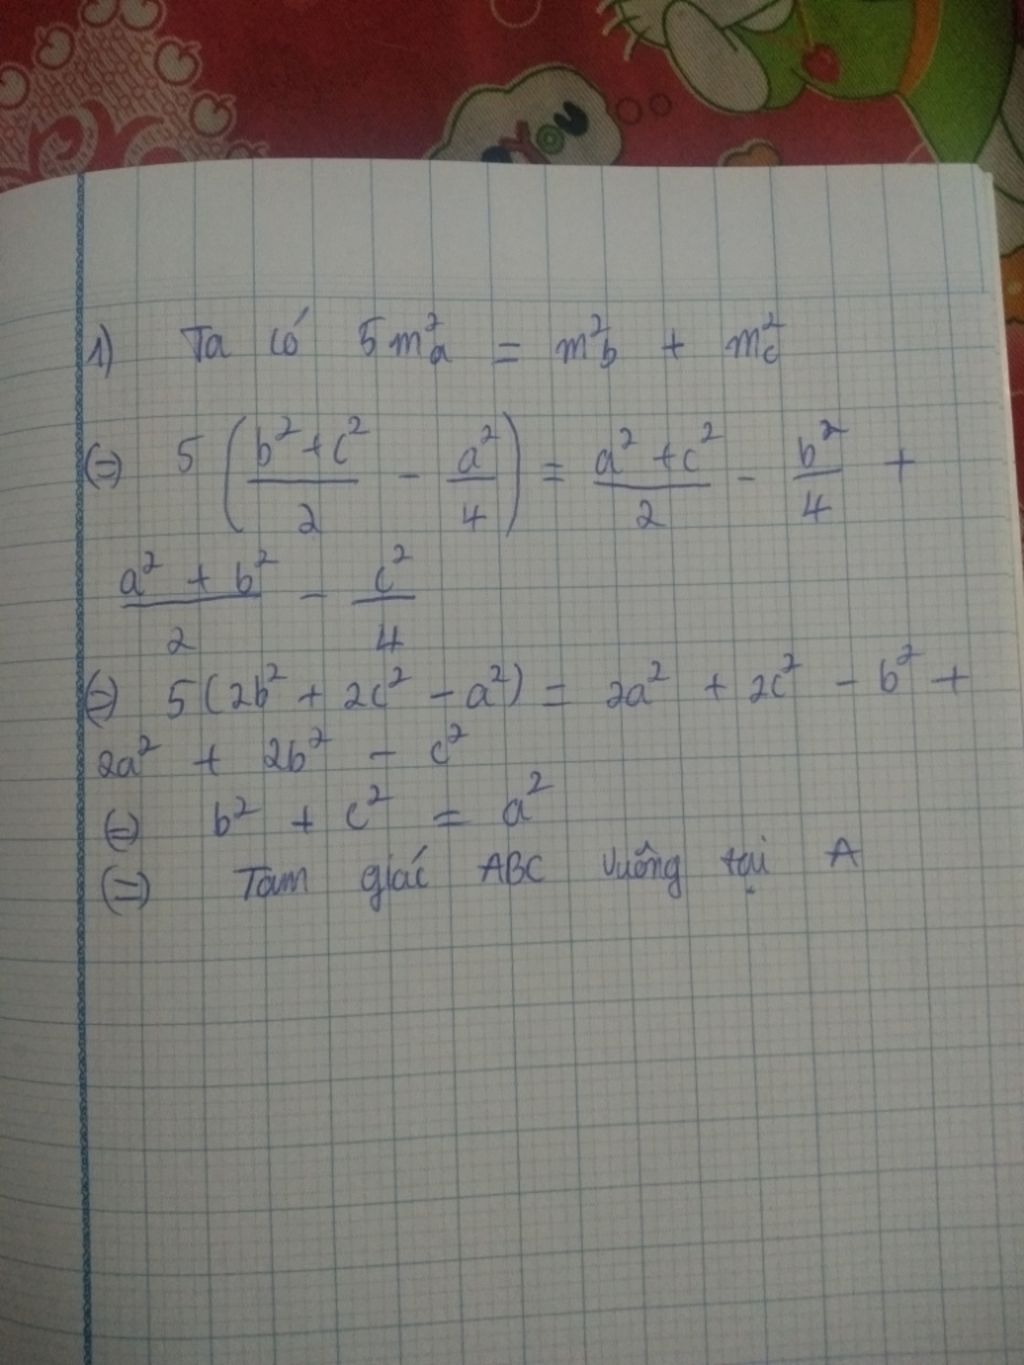 YOU
1) Ta có 5m²ₐ = m²_b + m²_c
(=) 5 ( (b² + c²)/2 - a²/4 ) = (a² + c²)/2 - b²/4 +
(a² + b²)/2 - c²/4
(=) 5 (2b² + 2c² - a²) = 2a² + 2c² - b² +
2a² + 2b² - c²
(=) b² + c² = a²
(=) Tam giác ABC vuông tại A